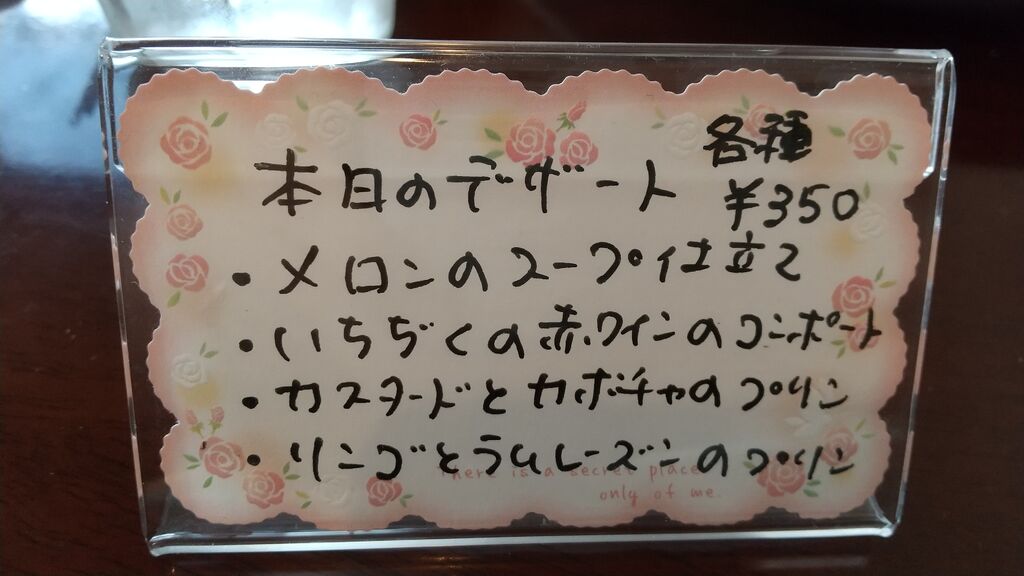 本日のデザート
各種
¥350
・メロンのスープ仕立て
・いちぢくの赤ワインのコンポート
・カスタードとカボチャのプリン
・リンゴとラムレーズンのプリン
There is a secret place
only of me.